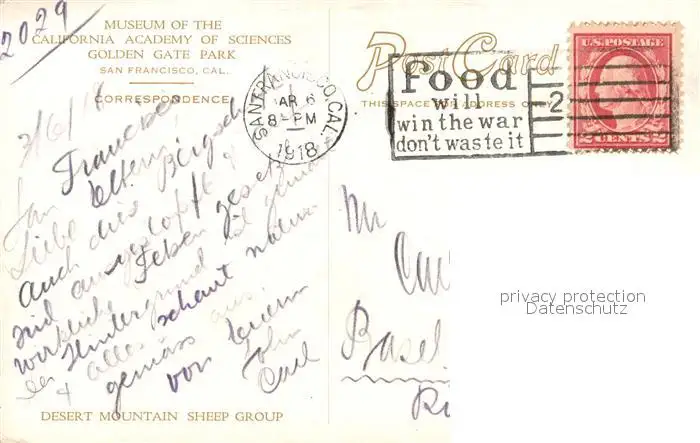 2029
MUSEUM OF THE
CALIFORNIA ACADEMY OF SCIENCES
GOLDEN GATE PARK
SAN FRANCISCO, CAL.
CORRESPONDENCE
3/6/18
San Francisco,
Liebe Eltern,
auch diese
sind ausgestopfte &
wirkliche Felsen gesetzt
der Hintergrund ist gemalt
& alles schaut natur-
gemäss aus.
von Eurem
Sohn
Carl
DESERT MOUNTAIN SHEEP GROUP
Post Card
THIS SPACE FOR ADDRESS ONLY
SAN FRANCISCO, CAL.
MAR 6
8-PM
1918
Food
will
win the war
don't waste it
U.S. POSTAGE
2
2 CENTS 2
Mr
Basel
privacy protection
Datenschutz